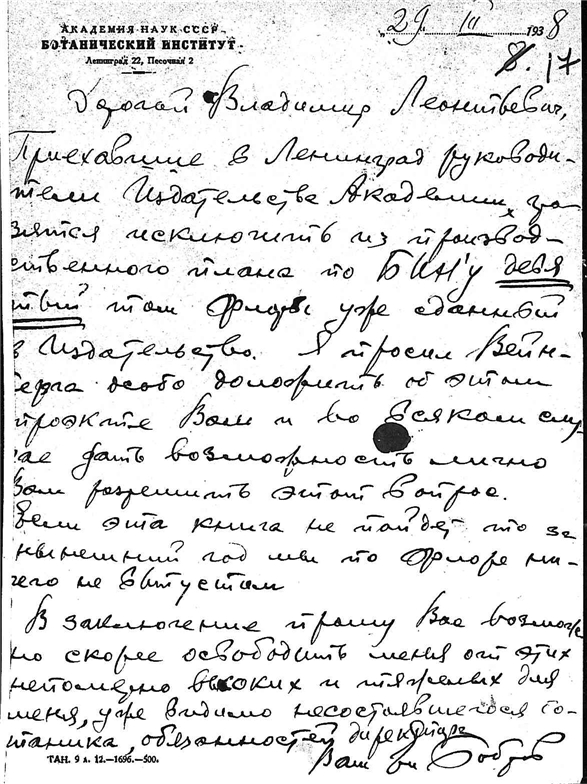 АКАДЕМИЯ НАУК СССР
БОТАНИЧЕСКИЙ ИНСТИТУТ
Ленинград 22, Песочная 2
„29" III 1938
8. 17
Дорогой Владимир Леонтьевич,
Приехавшие в Ленинград руководи-
тели Издательства Академии, гро-
зятся исключить из производ-
ственного плана по БИН'у девя
тый том Флоры уже сданный
в Издательство. Я просил Вейн-
берга особо доложить об этом
проекте Вам и во всяком слу-
чае дать возможность лично
Вам разрешить этот вопрос.
Если эта книга не пойдет то за
нынешний год мы по Флоре ни-
чего не выпустим
В заключение прошу Вас возмож
но скорее освободить меня от этих
непомерно высоких и тяжелых для
меня, уже видимо несостоявшегося бо-
таника, обязанностей директора
Ваш Бобров
ТАН. 9 л. 12.—1696.—500.